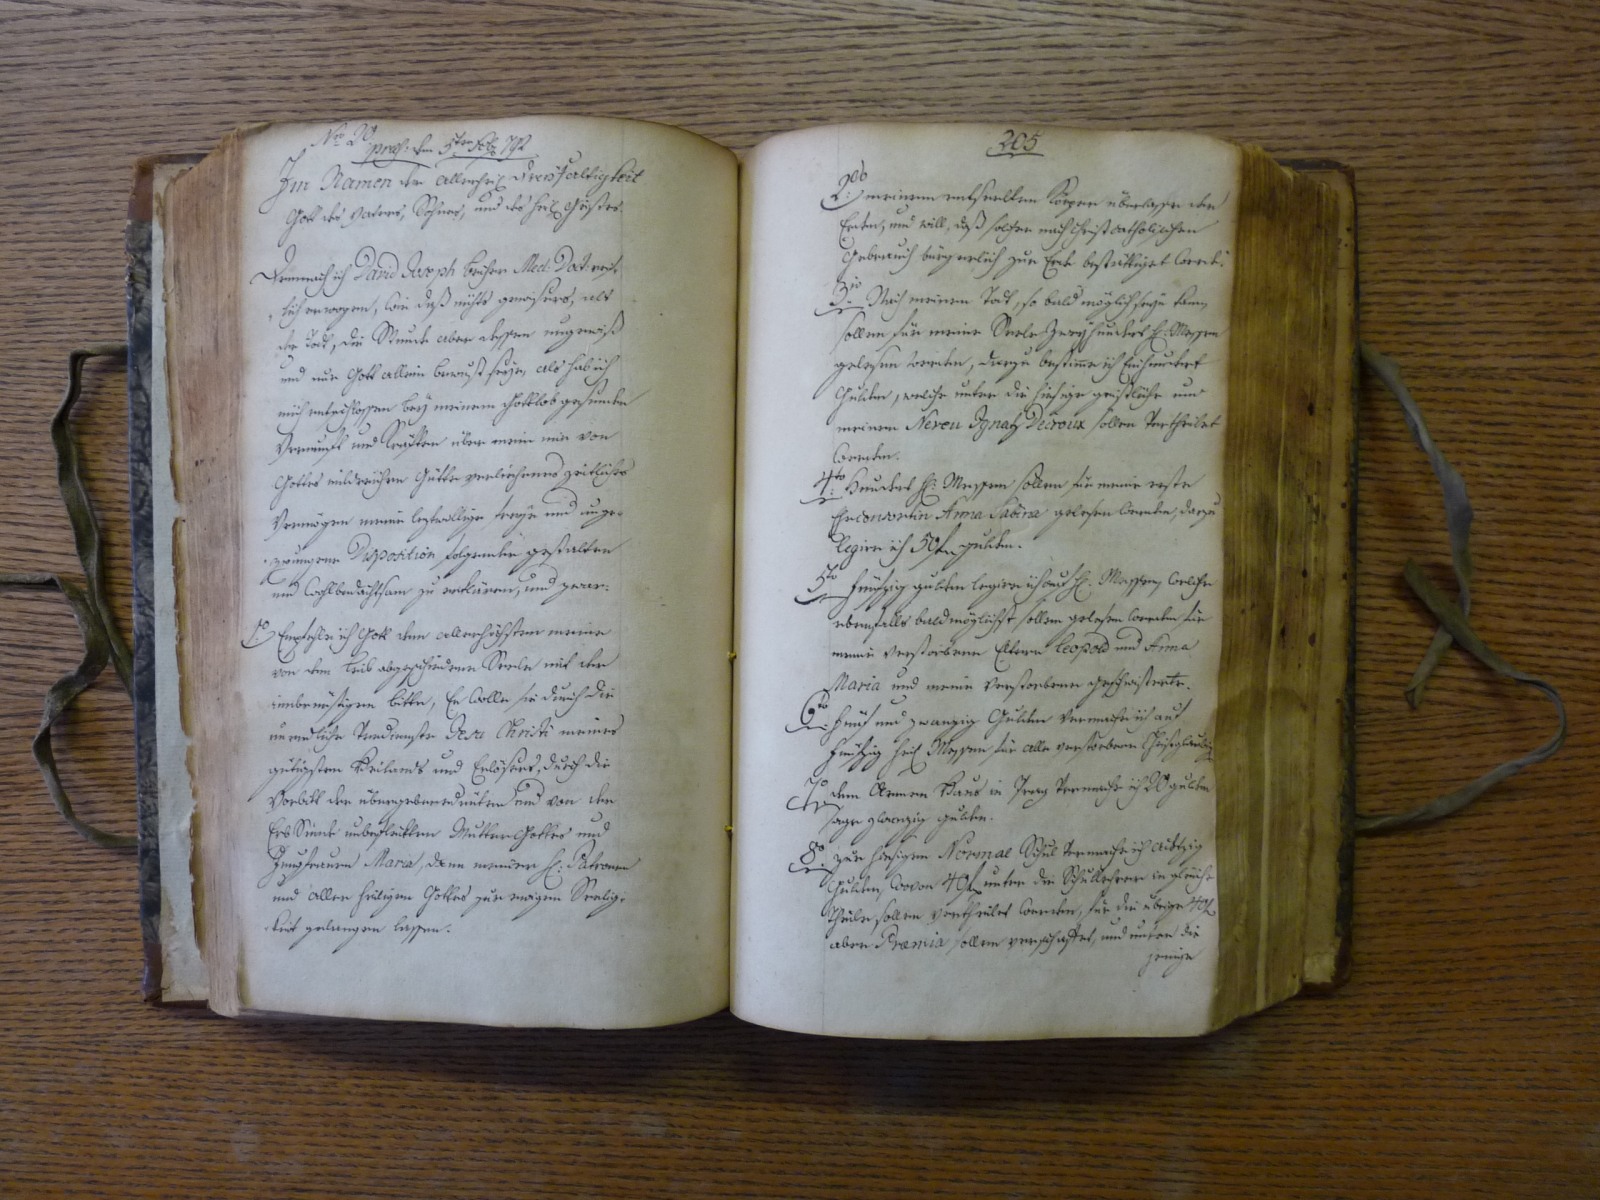 Nro 20
præs: den 5ten Febr 792
Im Namen der allerheil: Dreyfaltigkeit
Gott des Vaters, Sohnes, und des heil: Geistes.
Demnach ich David Joseph Med: Doct: reif-
lich erwogen, wie daß nichts gewissers, als
der Todt, die Stunde aber dessen ungewiß
und nur Gott allein bewust seye, als hab ich
mich entschlossen bey meinem Gottlob gesunden
Vernunft und Kräften über mein mir von
Gottes mildreichen Güte verliehenes zeitliches
Vermögen meine leztwillige freye und unge-
zwungene Disposition folgender gestalten
und wohlbedachtsam zu erklären, und zwar:
1o Empfehle ich Gott dem allerhöchsten meine
von dem Leib abgeschiedene Seele mit der
innbrünstigen bitte, Er wolle sie durch die
unendliche Verdienste Jesu Christi meines
gütigsten Heilands und Erlösers, durch die
Vorbitt der übergebenedeyten und von der
Erb Sünde unbefleckten Mutter Gottes und
Jungfrauen Maria, dann meiner h: Patronen
und allen heiligen Gottes zur ewigen Seelig-
keit gelangen lassen.
205
2do meinen entseelten Körper überlasse der
Erden, und will, daß solcher nach christcatholischen
Gebrauch bürgerlich zur Erde bestättiget werde.
3io Nach meinem Todt, so bald möglich seyn kann,
sollen für meine Seele Zweyhundert h: Messen
gelesen werden, darzu bestimme ich Einhundert
Gulden, welche unter die hiesige geistliche und
meinen Neveu Ignatz Decroux sollen Vertheilet
werden.
4to Hundert h: Messen sollen für meine erste
Ehconsortin Anna Sabina gelesen werden, darzu
legire ich 50f gulden.
5to Fünfzig gulden legire ich auf h: Messen, welche
ebenfalls baldmöglichst sollen gelesen werden für
meine verstorbene Eltern Leopold und Anna
Maria und meine verstorbene geschwisterte.
6to Fünf und zwanzig Gulden Vermache ich auf
Fünfzig heil: Messen für alle verstorbene Christglaubige
7o dem Armen Haus in Prag Vermache ich 20 gulden
sage zwanzig gulden.
8o zur hiesigen Normal Schul Vermache ich achtzig
Gulden, wovon 40f unter die Schullehrer in gleiche
Theile sollen vertheilet werden, für die übrige 40f
aber Præmia sollen verschaffet, und unter die
jenige